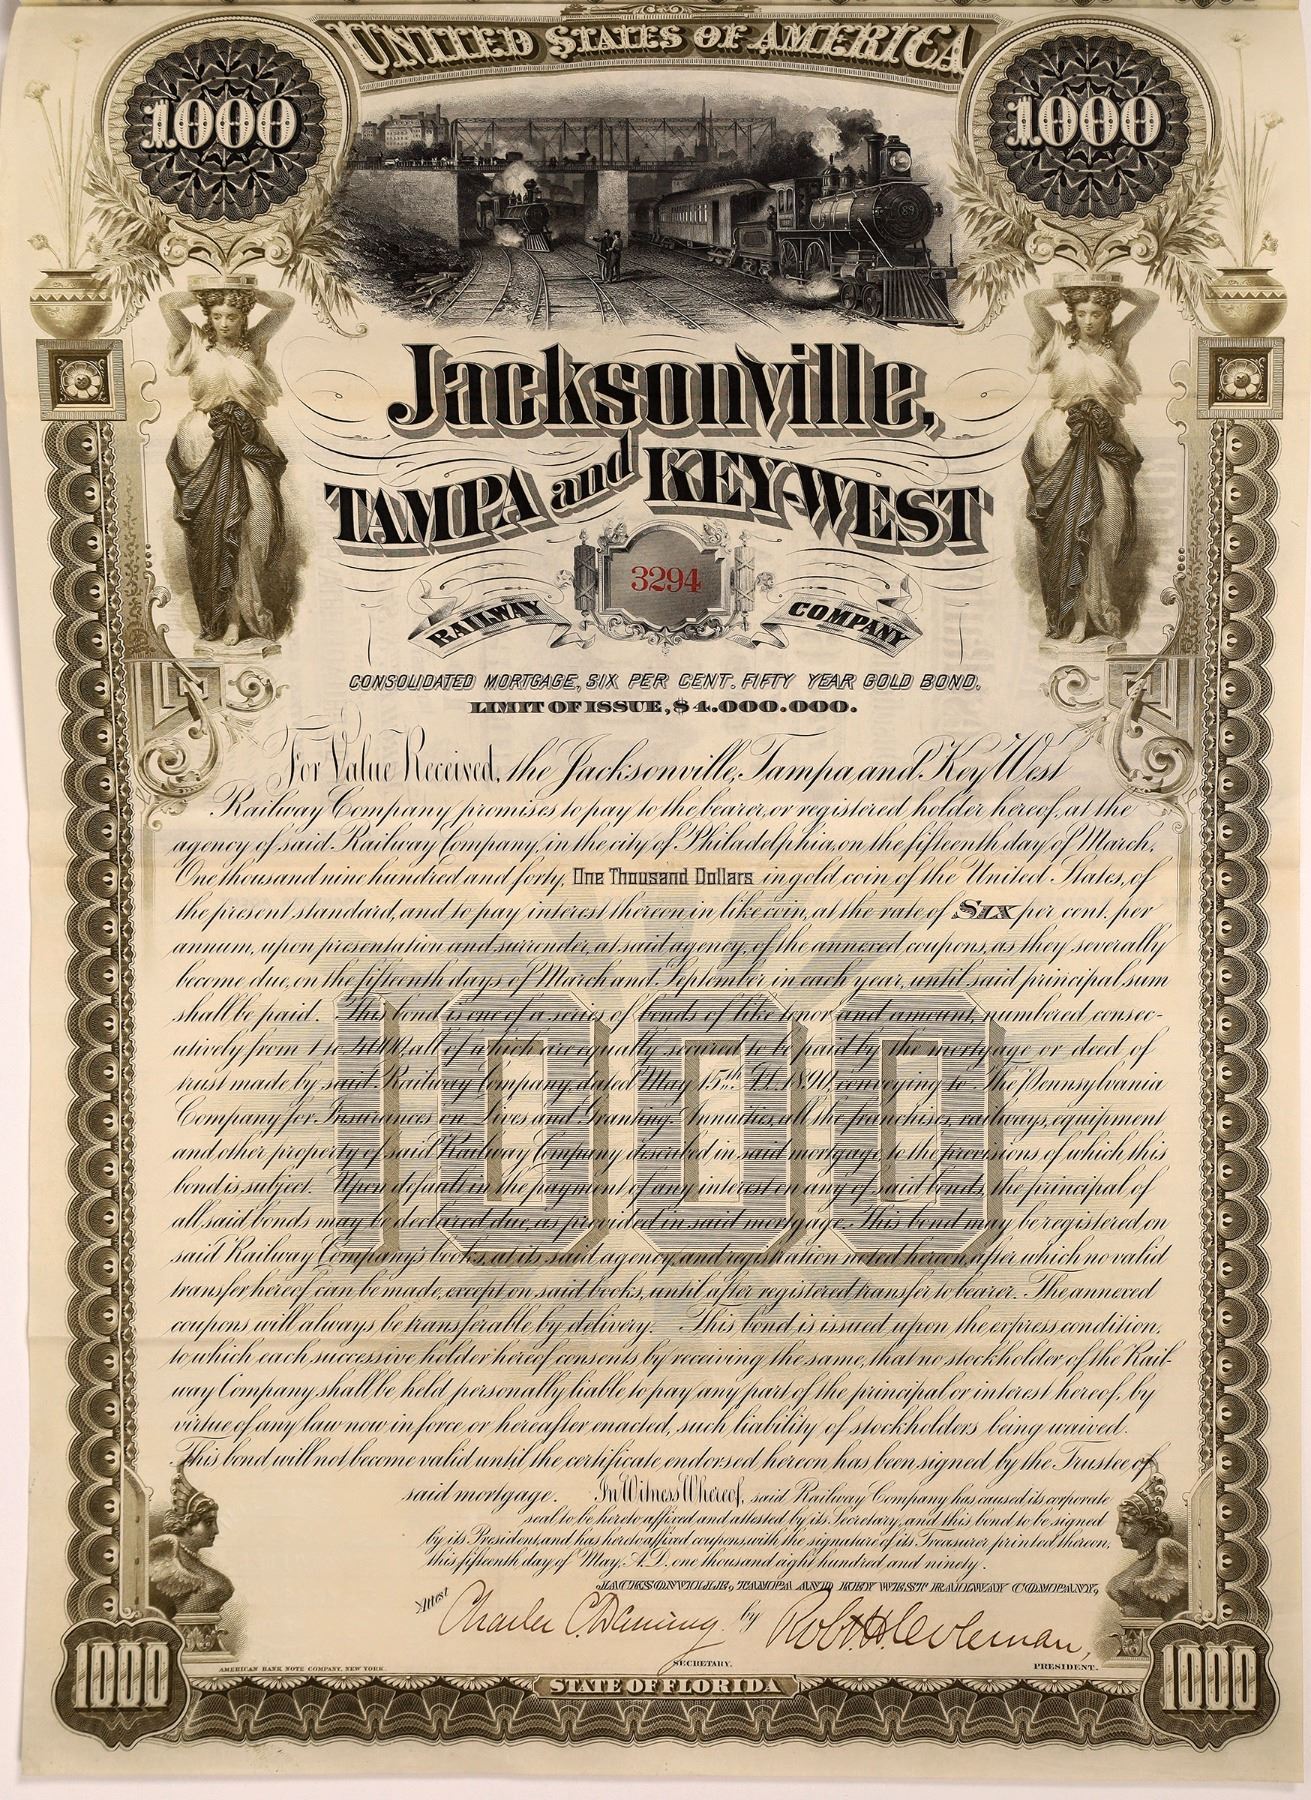 UNITED STATES OF AMERICA
1000 1000
89
Jacksonville,
TAMPA and KEY-WEST
3294
RAILWAY COMPANY
CONSOLIDATED MORTGAGE, SIX PER CENT. FIFTY YEAR GOLD BOND.
LIMIT OF ISSUE, $4.000.000.
For Value Received, the Jacksonville, Tampa, and Key West
Railway Company promises to pay to the bearer, or registered holder hereof, at the
agency of said Railway Company, in the city of Philadelphia, on the fifteenth day of March,
One thousand nine hundred and forty, One Thousand Dollars in gold coin of the United States, of
the present standard, and to pay interest thereon in like coin, at the rate of SIX per cent. per
annum, upon presentation and surrender, at said agency, of the annexed coupons, as they severally
become due, on the fifteenth days of March and September in each year, until said principal sum
shall be paid. This bond is one of a series of bonds of like tenor and amount, numbered consec-
utively from 1 to 4000, all of which are equally secured to be paid by the mortgage or deed of
trust made by said Railway Company, dated May 15th A.D. 1890, conveying to The Pennsylvania
Company for Insurances on Lives and Granting Annuities, all the franchises, railways, equipment
and other property of said Railway Company described in said mortgage, to the provisions of which this
bond is subject. Upon default in the payment of any interest on any of said bonds, the principal of
all said bonds may be declared due, as provided in said mortgage. This bond may be registered on
said Railway Company's books, at its said agency, and registration noted hereon, after which no valid
transfer hereof can be made, except on said books, until after registered transfer to bearer. The annexed
coupons will always be transferable by delivery. This bond is issued upon the express condition,
to which each successive holder hereof consents by receiving the same, that no stockholder of the Rail-
way Company shall be held personally liable to pay any part of the principal or interest hereof, by
virtue of any law now in force or hereafter enacted, such liability of stockholders being waived.
This bond will not become valid until the certificate endorsed hereon has been signed by the Trustee of
said mortgage. In Witness Whereof, said Railway Company has caused its corporate
seal to be hereto affixed and attested by its Secretary, and this bond to be signed
by its President, and has hereto affixed coupons, with the signature of its Treasurer printed thereon,
this fifteenth day of May, A.D. one thousand eight hundred and ninety.
JACKSONVILLE, TAMPA AND KEY WEST RAILWAY COMPANY,
Attest Charles C. Deming by Robt. H. Coleman,
SECRETARY. PRESIDENT.
AMERICAN BANK NOTE COMPANY, NEW YORK.
1000 1000
STATE OF FLORIDA